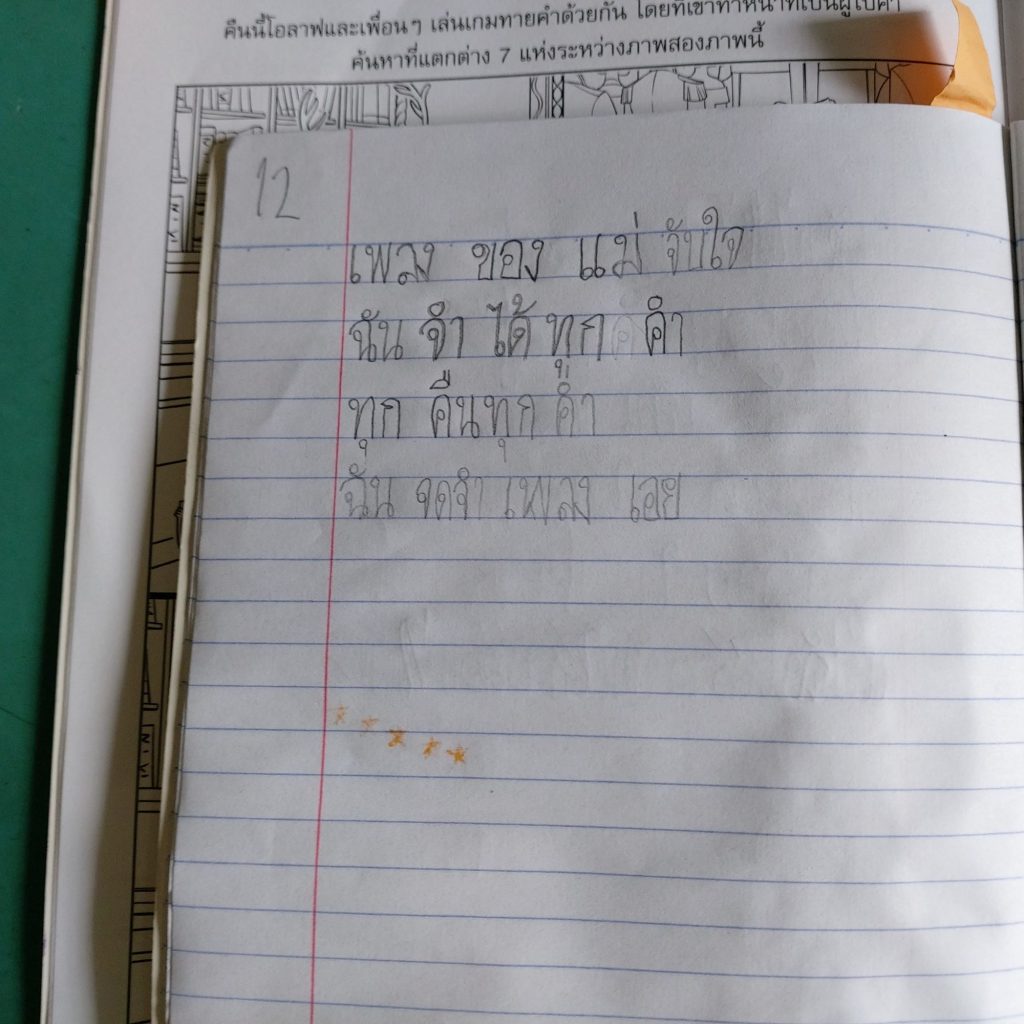 คืนนี้โอลาฟและเพื่อนๆ เล่นเกมทายคำด้วยกัน โดยที่เขาทำหน้าที่เป็นผู้ใบ้คำ
ค้นหาที่แตกต่าง 7 แห่งระหว่างภาพสองภาพนี้
12
เพลง ของ แม่ จับใจ
ฉัน จำ ได้ ทูก คำ
ทุก คืนทุก คำ
ฉัน จดจำ เพลง เอย